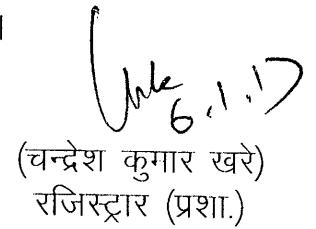 6.1.17
(चन्द्रेश कुमार खरे)
रजिस्ट्रार (प्रशा.)